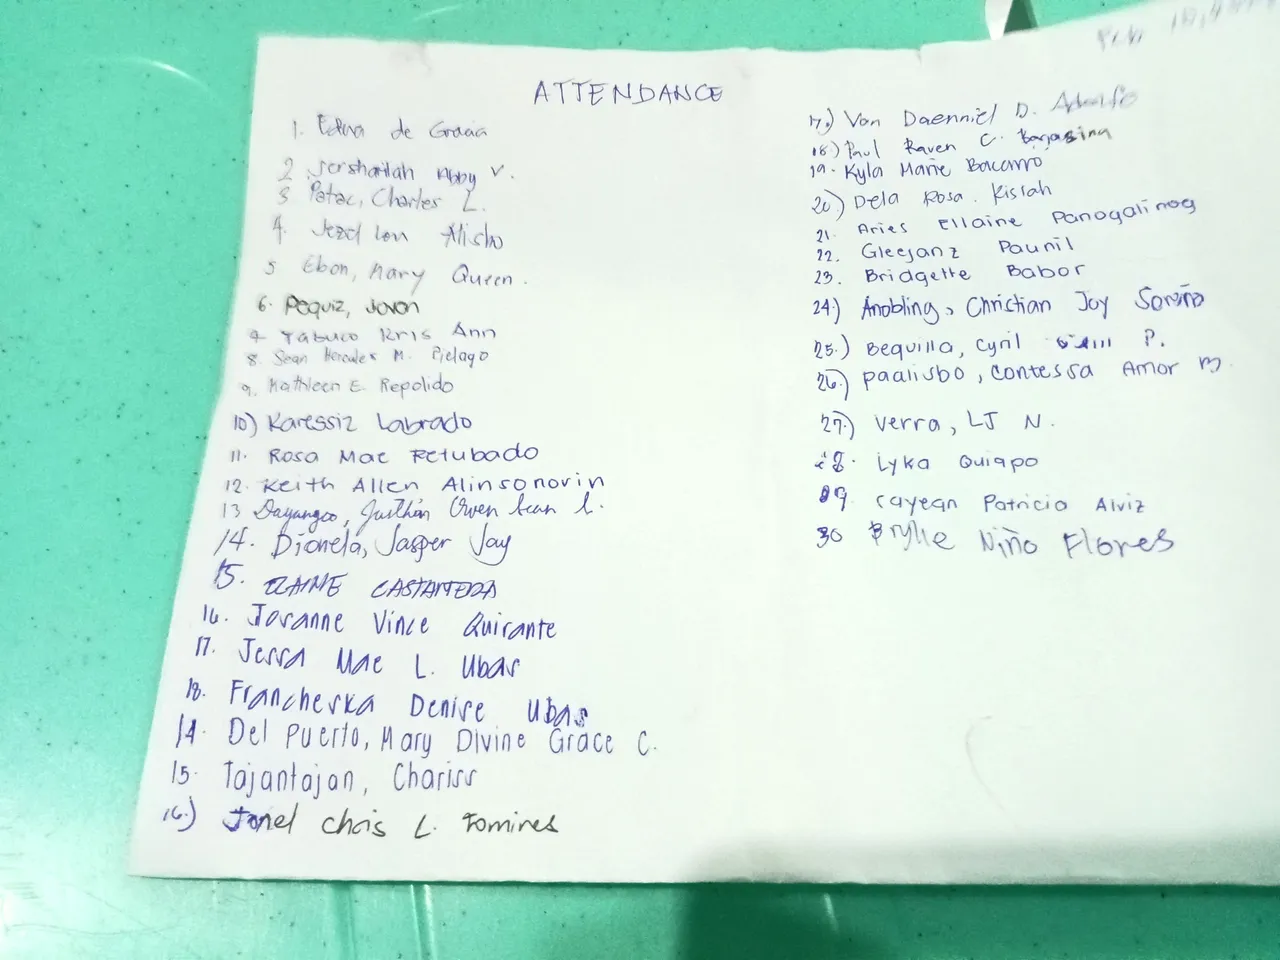 ATTENDANCE
1. Edna de Gracia
2 Jershailah Abby V.
3 Patac, Charles L.
4. Jezel Lou Alisbo
5 Ebon, Mary Queen.
6. Pequiz, Jovon
7 Tabuco Kris Ann
8. Sean Hercules M. Pielago
9. Kathleen E. Repolido
10) Karessiz Labrado
11. Rosa Mae Retubado
12. Keith Allen Alinsonorin
13 Dayangco, Justhin Owen Sean L.
14. Dionela, Jasper Jay
15. ELAINE CASTAÑEDA
16. Joranne Vince Quirante
17. Jessa Mae L. Ubas
18. Francheska Denise Ubas
14. Del Puerto, Mary Divine Grace C.
15. Tajantajan, Chariss
16.) Jonel Chris L. Tomines
17.) Von Daenniel D. Adolfo
18.) Paul Raven C. Bargasina
19. Kyla Marie Bacarro
20.) Dela Rosa. Kislah
21. Aries Ellaine Panogalinog
22. Gleejanz Paunil
23. Bridgette Babor
24.) Anobling, Christian Joy Soroño
25.) Bequilla, Cyril P.
26.) Paalisbo, Contessa Amor M.
27.) Verra, LJ N.
28. Lyka Quiapo
29. Cayean Patricio Alviz
30 Brylle Niño Flores